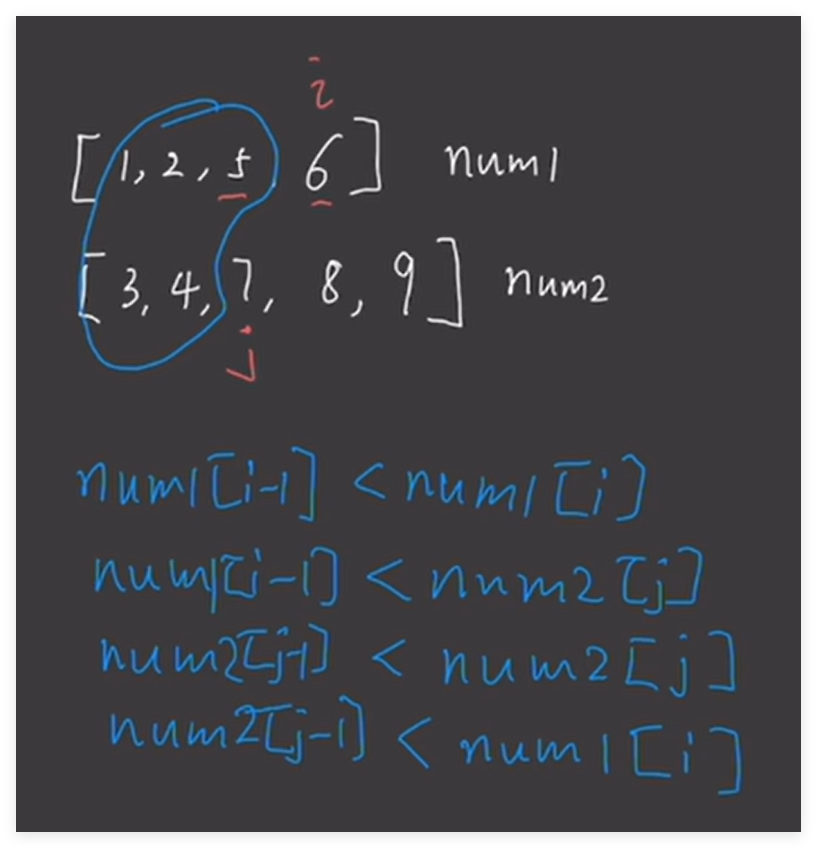 i
[1, 2, 5 6] num1
[3, 4, 7, 8, 9] num2
j
num1[i-1] < num1[i]
num1[i-1] < num2[j]
num2[j-1] < num2[j]
num2[j-1] < num1[i]